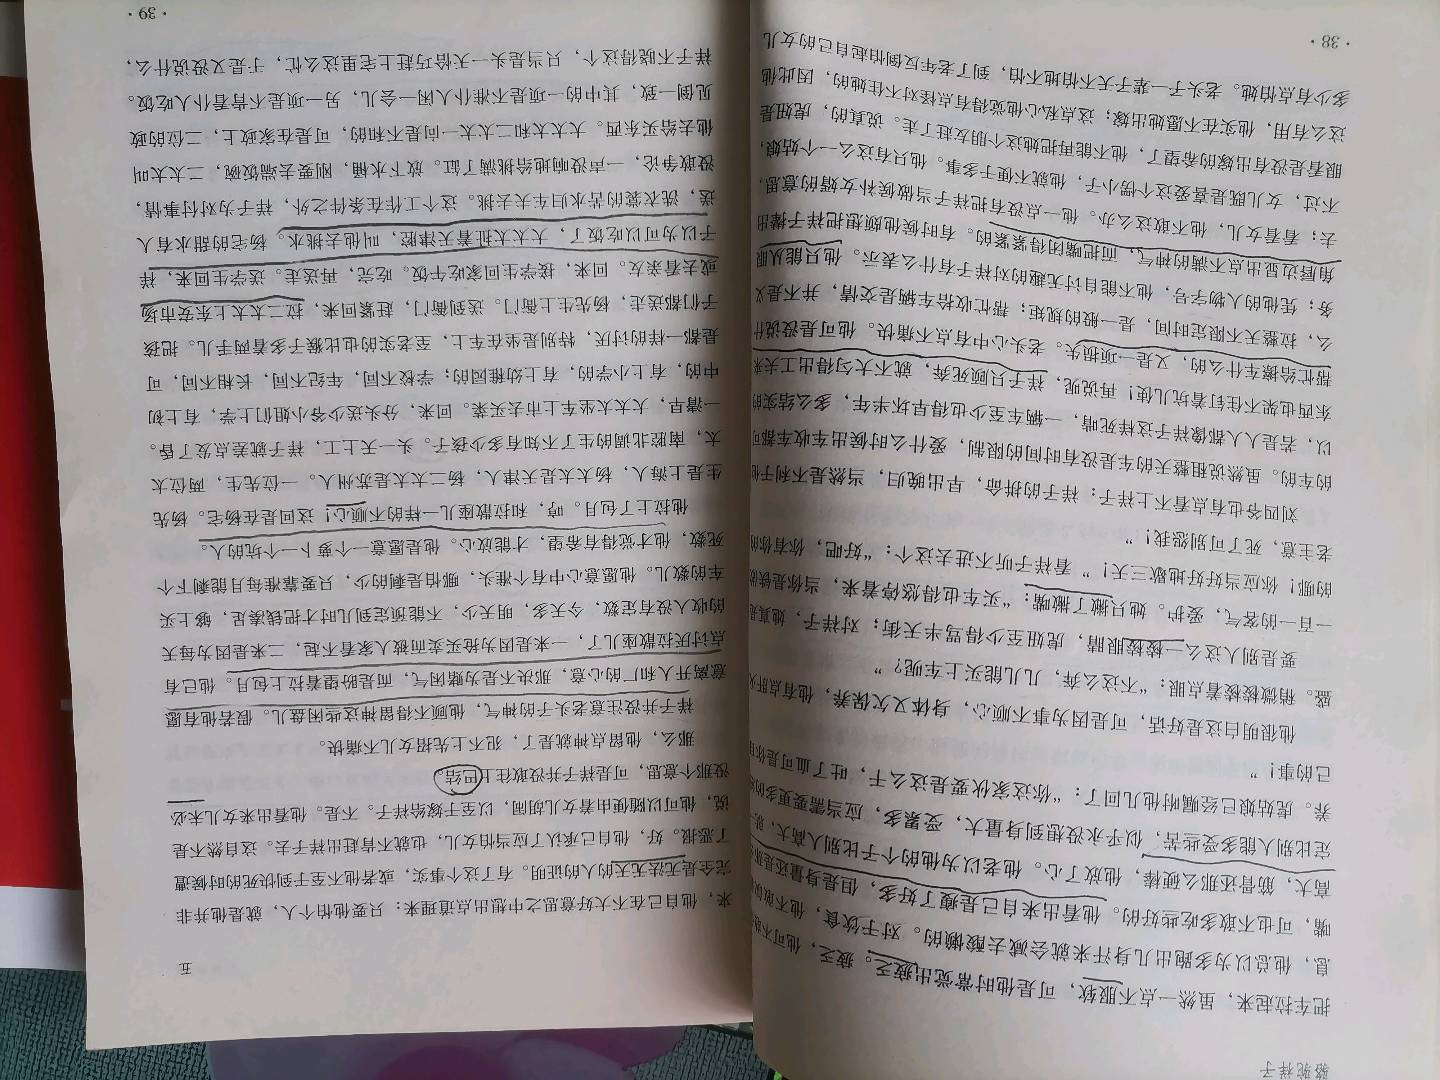 骆驼祥子
把车拉起来，虽然一点不服软，可是他时常觉出疲乏。疲乏，他可不
息，他总以为多跑出几身汗来就会减去酸懒的。对于饮食，他不敢
嘴，可也不敢多吃些好的。他看出来自己是瘦了好多，但是身量还是那
高大，筋骨还那么硬棒，他放了心。他老以为他的个子比别人高大，就
定比别人能多受些苦，似乎永没想到身量大，受累多，应当需要更多的
养。虎姑娘已经嘱咐他几回了：“你这家伙要是这么干，吐了血可是你
己的事！”
他很明白这是好话，可是因为事不顺心，身体又欠保养，他有点肝火
盛。稍微棱棱着点眼：“不这么奔，几儿能买上车呢？”
要是别人这么一棱棱眼睛，虎妞至少得骂半天街；对祥子，她真是
一百一的客气，爱护。她只撇了撇嘴：“买车也得悠停着来，当你是铁做
的哪！你应当好好地歇三天！”看祥子听不进去这个：“好吧，你有你的
老主意，死了可别怨我！”
刘四爷也有点看不上祥子：祥子的拼命，早出晚归，当然是不利于他
的车的。虽然说租整天的车是没有时间的限制，爱什么时候出车收车都可
以，若是人人都像祥子这样死啃，一辆车至少也得早坏半年，多么结实的
东西也架不住钉着坑儿使！再说呢，祥子只顾死奔，就不大匀得出工夫来
帮忙给擦车什么的，又是一项损失。老头心中有点不痛快。他可是没说什
么，拉整天不限定时间，是一般的规矩；帮忙收拾车辆是交情，并不是义
务；凭他的人物字号，他不能自讨无趣的对祥子有什么表示。他只能从眼
角唇边显出点不满的神气，而把嘴闭得紧紧的。有时候他颇想把祥子撵出
去；看看女儿，他不敢这么办。他一点没有把祥子当做候补女婿的意思，
不过，女儿既是喜爱这个愣小子，他就不便于多事。他只有这么一个姑娘，
眼看是没有出嫁的希望了，他不能再把她这个朋友赶了走。说真的，虎妞是
这么有用，他实在不愿她出嫁；这点私心他觉得有点怪对不住她的，因此他
多少有点怕她。老头子一辈子天不怕地不怕，到了老年反倒怕起自己的女儿
·38·
五
来，他自己在不大好意思之中想出点道理来：只要他怕个人，就是他并非
完全是无法无天的人的证明。有了这个事实，或者他不至于到快死的时候遭
了恶报。好，他自己承认了应当怕女儿，也就不肯赶出祥子去。这自然不是
说，他可以随便由着女儿胡闹，以至于嫁给祥子。不是。他看出来女儿未必
没那个意思，可是祥子并没敢往上巴结。
那么，他留点神就是了，犯不上先招女儿不痛快。
祥子并没注意老头子的神气，他顾不得留神这些闲盘儿。假若他有愿
意离开人和厂的心意，那决不是为赌闲气，而是盼望着拉上包月。他已有
点讨厌拉散座儿了，一来是因为抢买卖而被人家看不起，二来是因为每天
的收入没有定数，今天多，明天少，不能预定到几时才把钱凑足，够上买
车的数儿。他愿意心中有个准头，哪怕是剩的少，只要靠准每月能剩下个
死数，他才觉得有希望，才能放心。他是愿意一个萝卜一个坑的人。
他拉上了包月。哼，和拉散座儿一样的不顺心！这回是在杨宅。杨先
生是上海人，杨太太是天津人，杨二太太是苏州人。一位先生，两位太
太，南腔北调的生了不知有多少孩子。头一天上工，祥子就差点发了昏。
一清早，大太太坐车上市去买菜。回来，分头送少爷小姐们上学，有上初
中的，有上小学的，有上幼稚园的；学校不同，年纪不同，长相不同，可
是都一样的讨厌，特别是坐在车上，至老实的也比猴子多着两手儿。把孩
子们都送走，杨先生上衙门。送到衙门，赶紧回来，拉二太太上东安市场
或去看亲友。回来，接学生回家吃午饭。吃完，再送走。送学生回来，祥
子以为可以吃饭了，大太太扯着天津腔，叫他去挑水。杨宅的甜水有人
送，洗衣裳的苦水归车夫去挑。这个工作在条件之外，祥子为对付事情，
没敢争论，一声没响地给挑满了缸。放下水桶，刚要去端饭碗，二太太叫
他去给买东西。大太太和二太太一向是不和的，可是在家政上，二位的政
见倒一致，其中的一项是不准仆人闲一会儿，另一项是不肯看仆人吃饭。
祥子不晓得这个，只当是头一天恰巧赶上宅里这么忙，于是又没说什么，
·39·